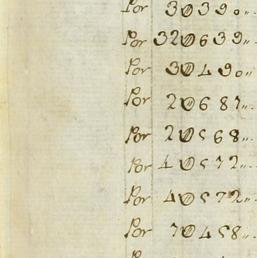 Por 30390„.
Por 320639„.
Por 30490„.
Por 20687„.
Por 20568„.
Por 40572„.
Por 40572„.
Por 70458„.